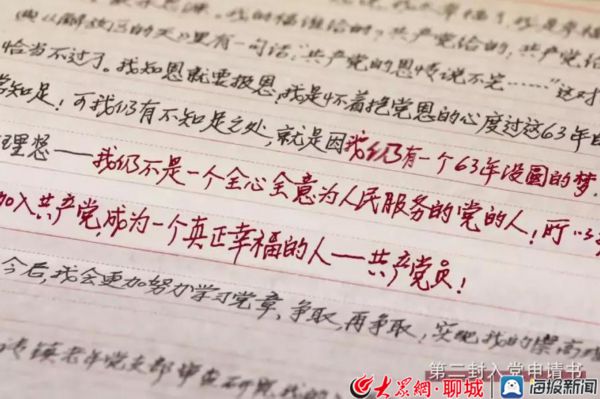 我的福谁给的？共产党给的，共产党给
曲《解放区的天》里有一句话：“共产党的恩情说不完……”这对
恰当不过了。我知恩就要报恩，我是怀着报党恩的心度过这63年
常知足！可我仍有不知足之处，就是因我仍有一个63年没圆的梦，
理想——我仍不是一个全心全意为人民服务的党的人！所以
加入共产党，成为一个真正幸福的人——共产党员！
今后，我会更加努力学习党章，争取，再争取，实现我的崇高
镇老年党支部审查研究，我的
第二封入党申请书
大众网·聊城
海报新闻